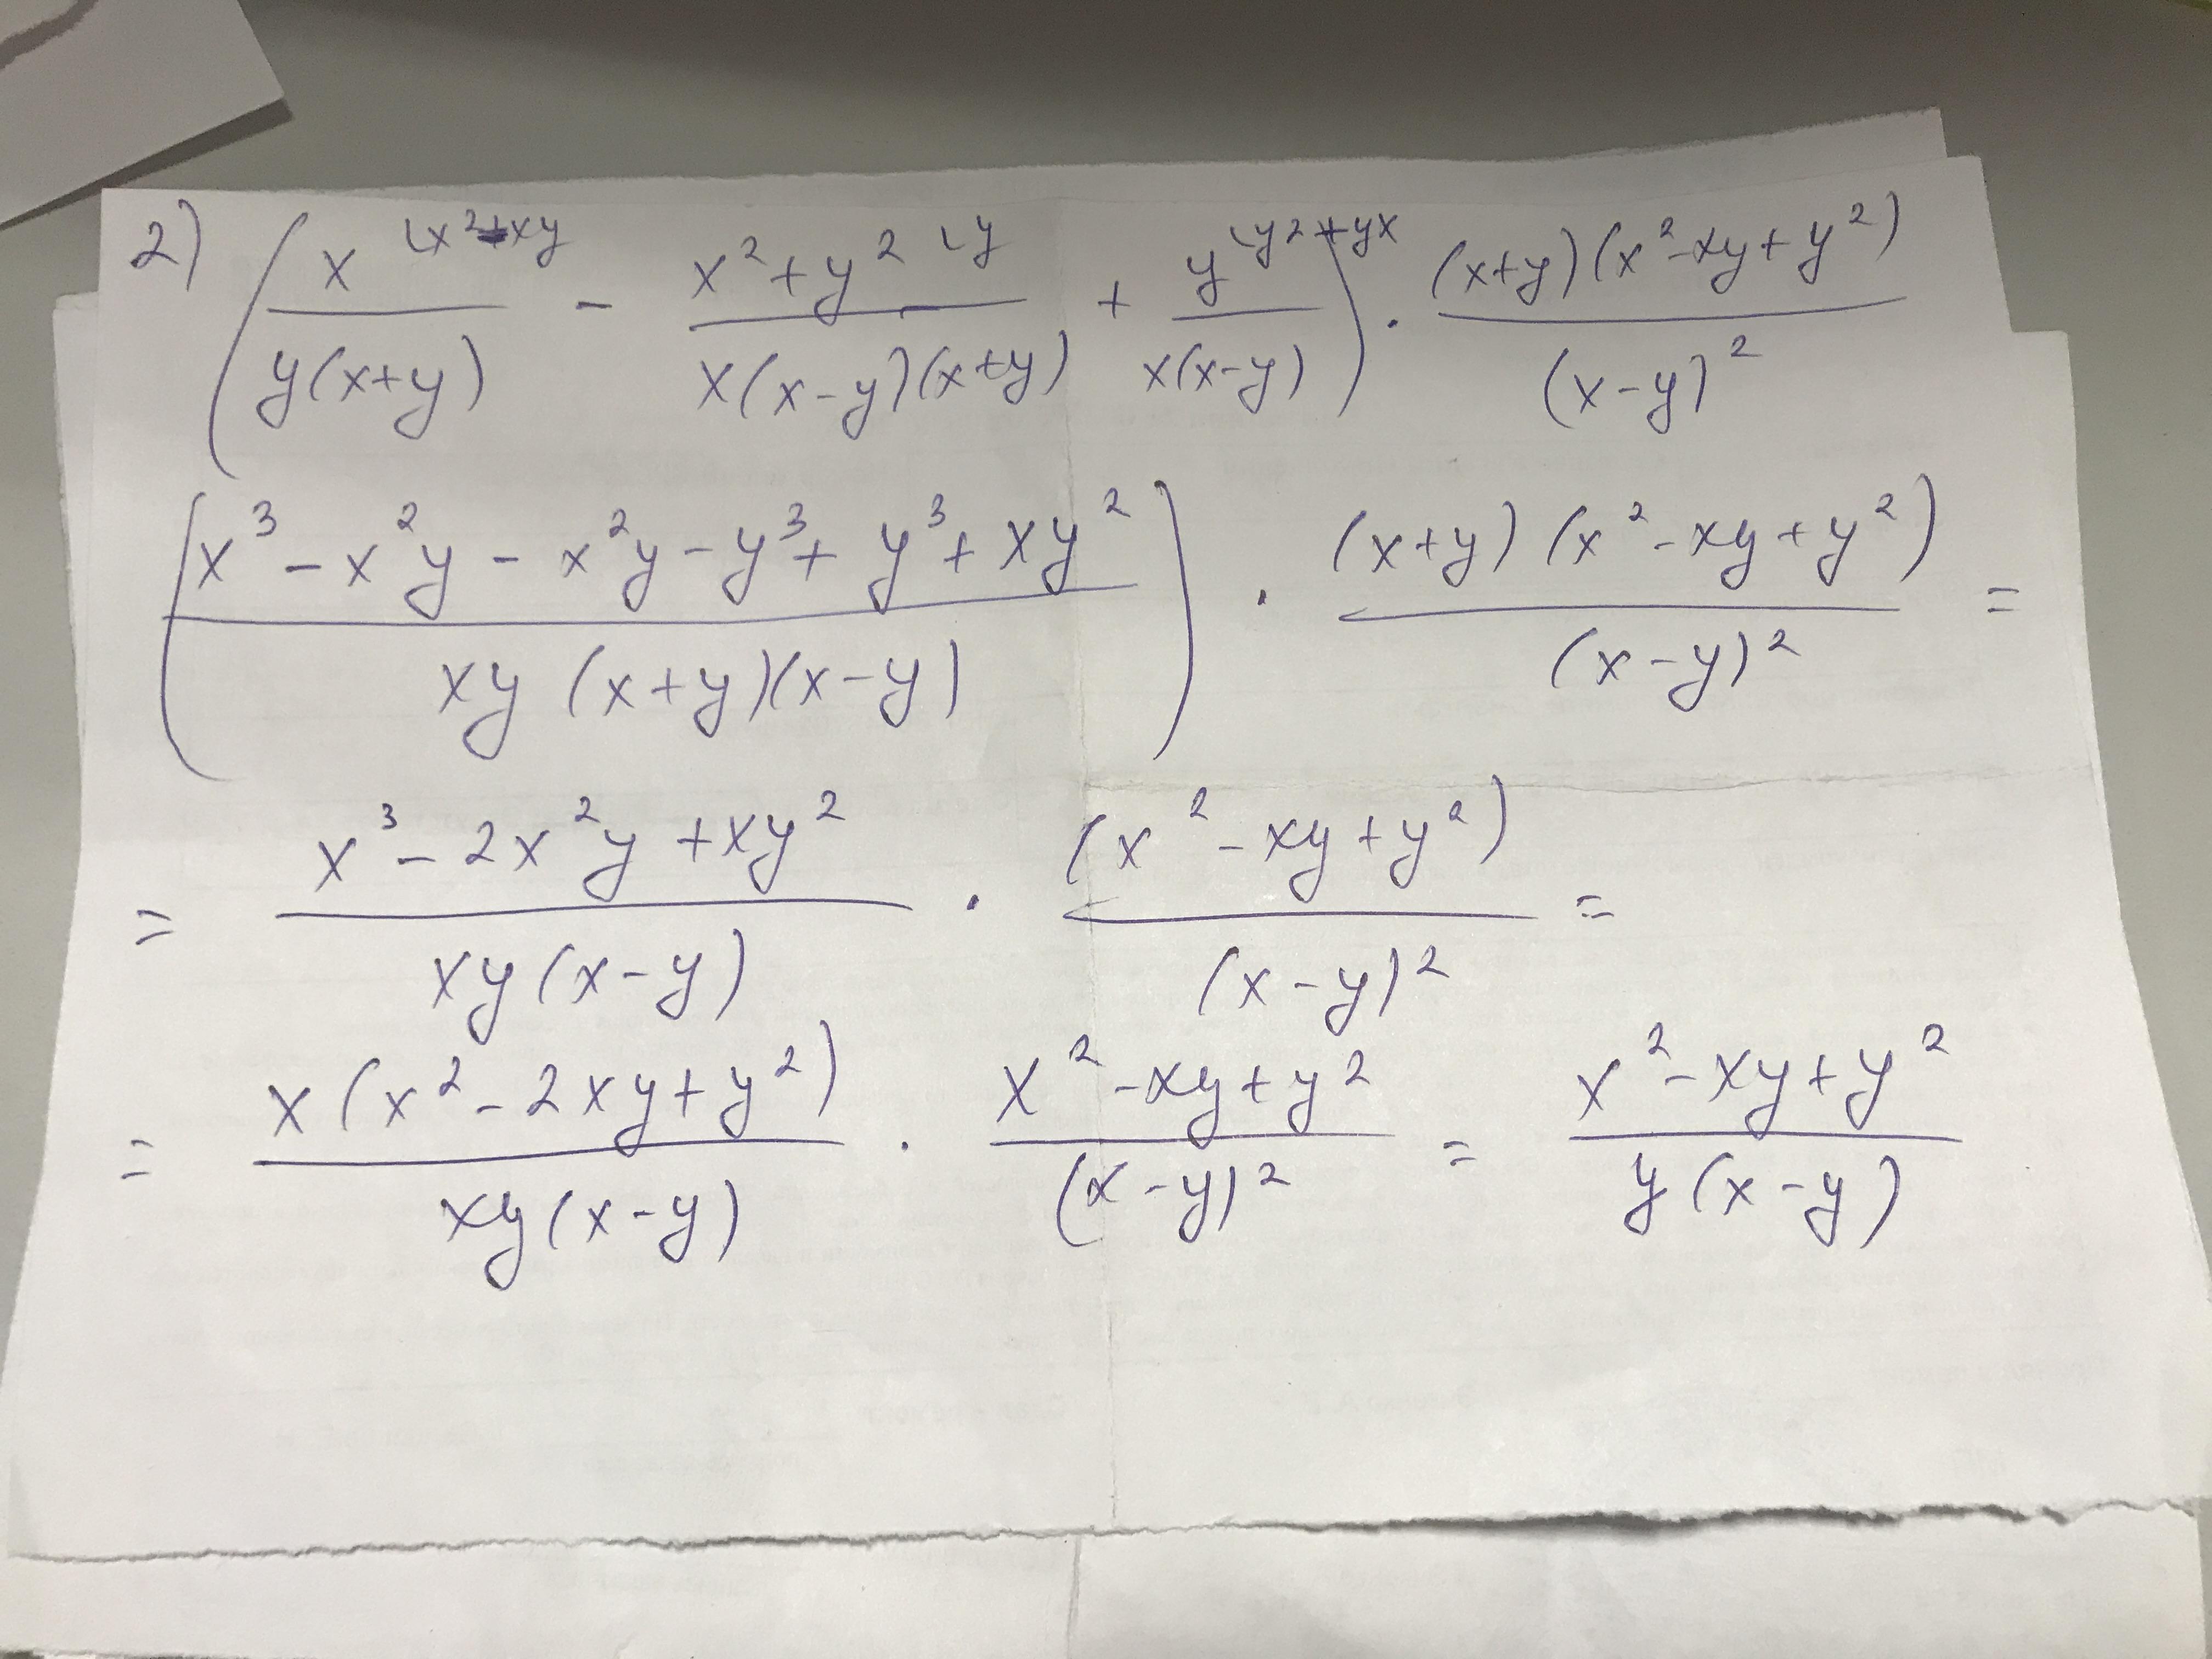 2) ( x ⌊x²-xy / y(x+y) - x²+y² ⌊y / x(x-y)(x+y) + y ⌊y²+yx / x(x-y) ) · (x+y)(x²-xy+y²) / (x-y)²
( x³-x²y-x²y-y³+y³+xy² / xy(x+y)(x-y) ) · (x+y)(x²-xy+y²) / (x-y)² =
= x³-2x²y+xy² / xy(x-y) · (x²-xy+y²) / (x-y)² =
= x(x²-2xy+y²) / xy(x-y) · x²-xy+y² / (x-y)² = x²-xy+y² / y(x-y)